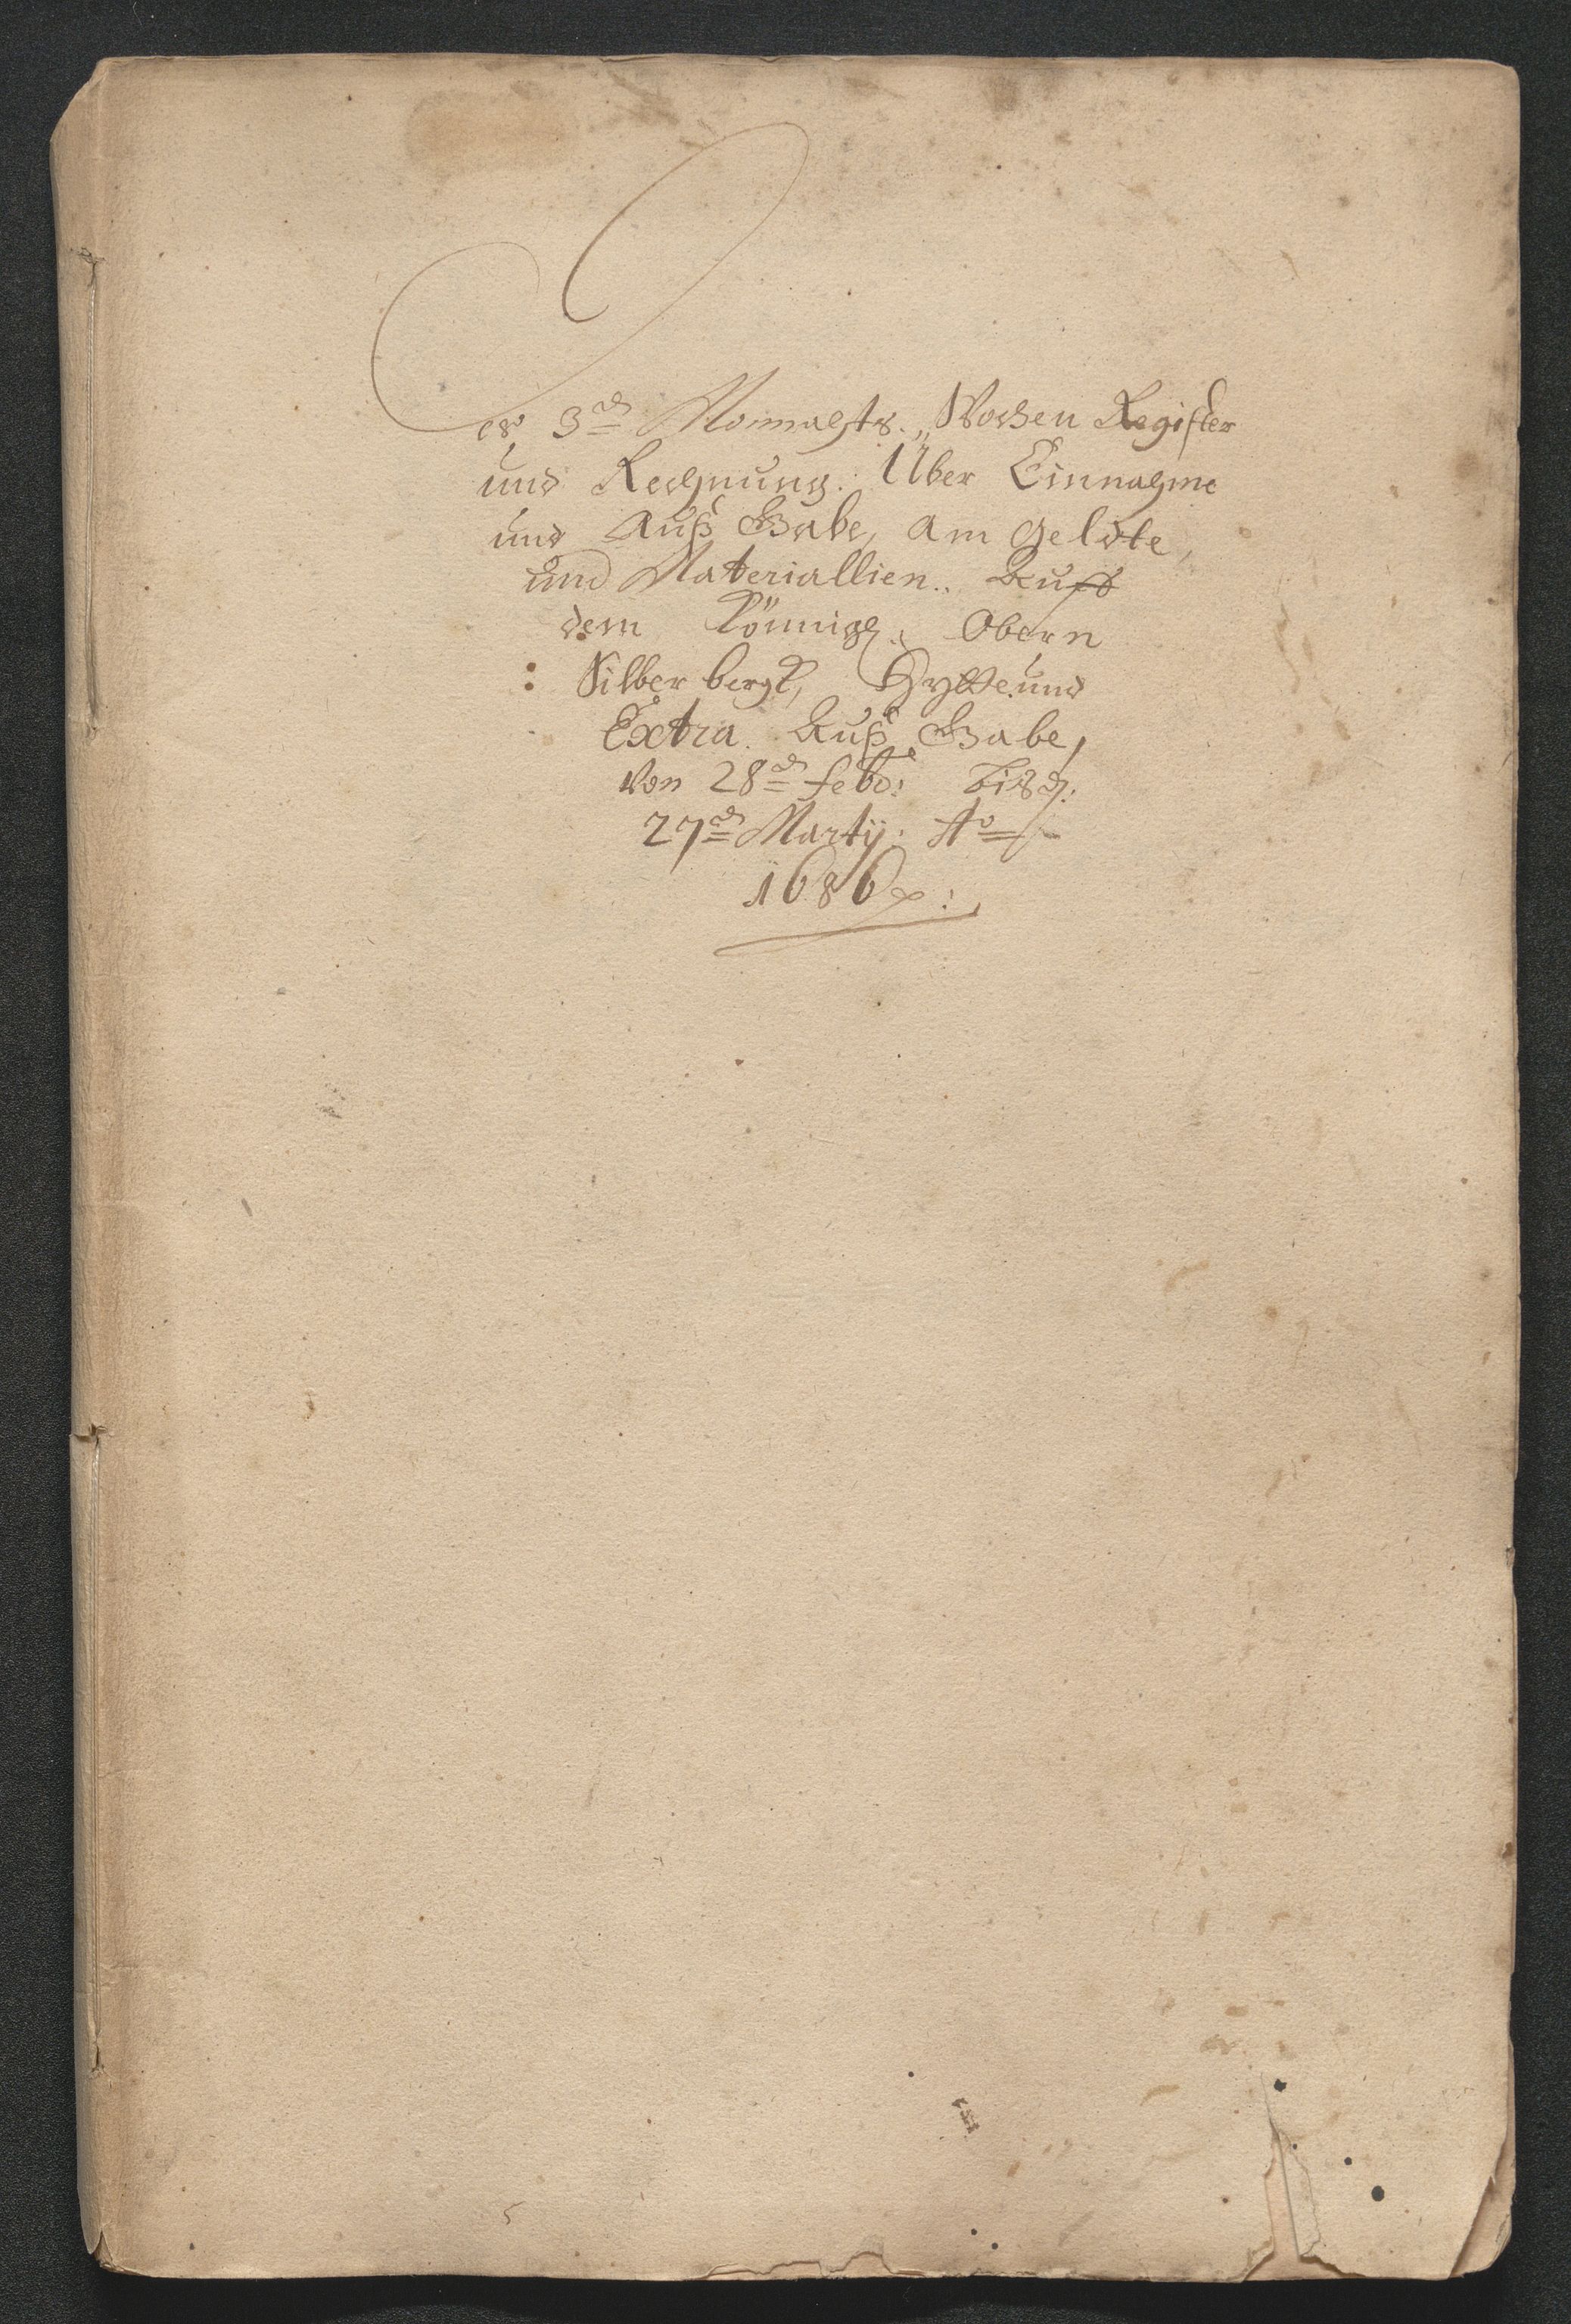 Des 3ten Monnahts. Wochen Register
und Rechnung. Über Einnahme
und Auß Gabe, am Geldte,
und Materiallien. Auff
dem Könnigl. Obern
: Silber bergk, Hytte und
Extra Auß Gabe,
Von 28ten febr: biß d:
27ten Martij: Ao
1686